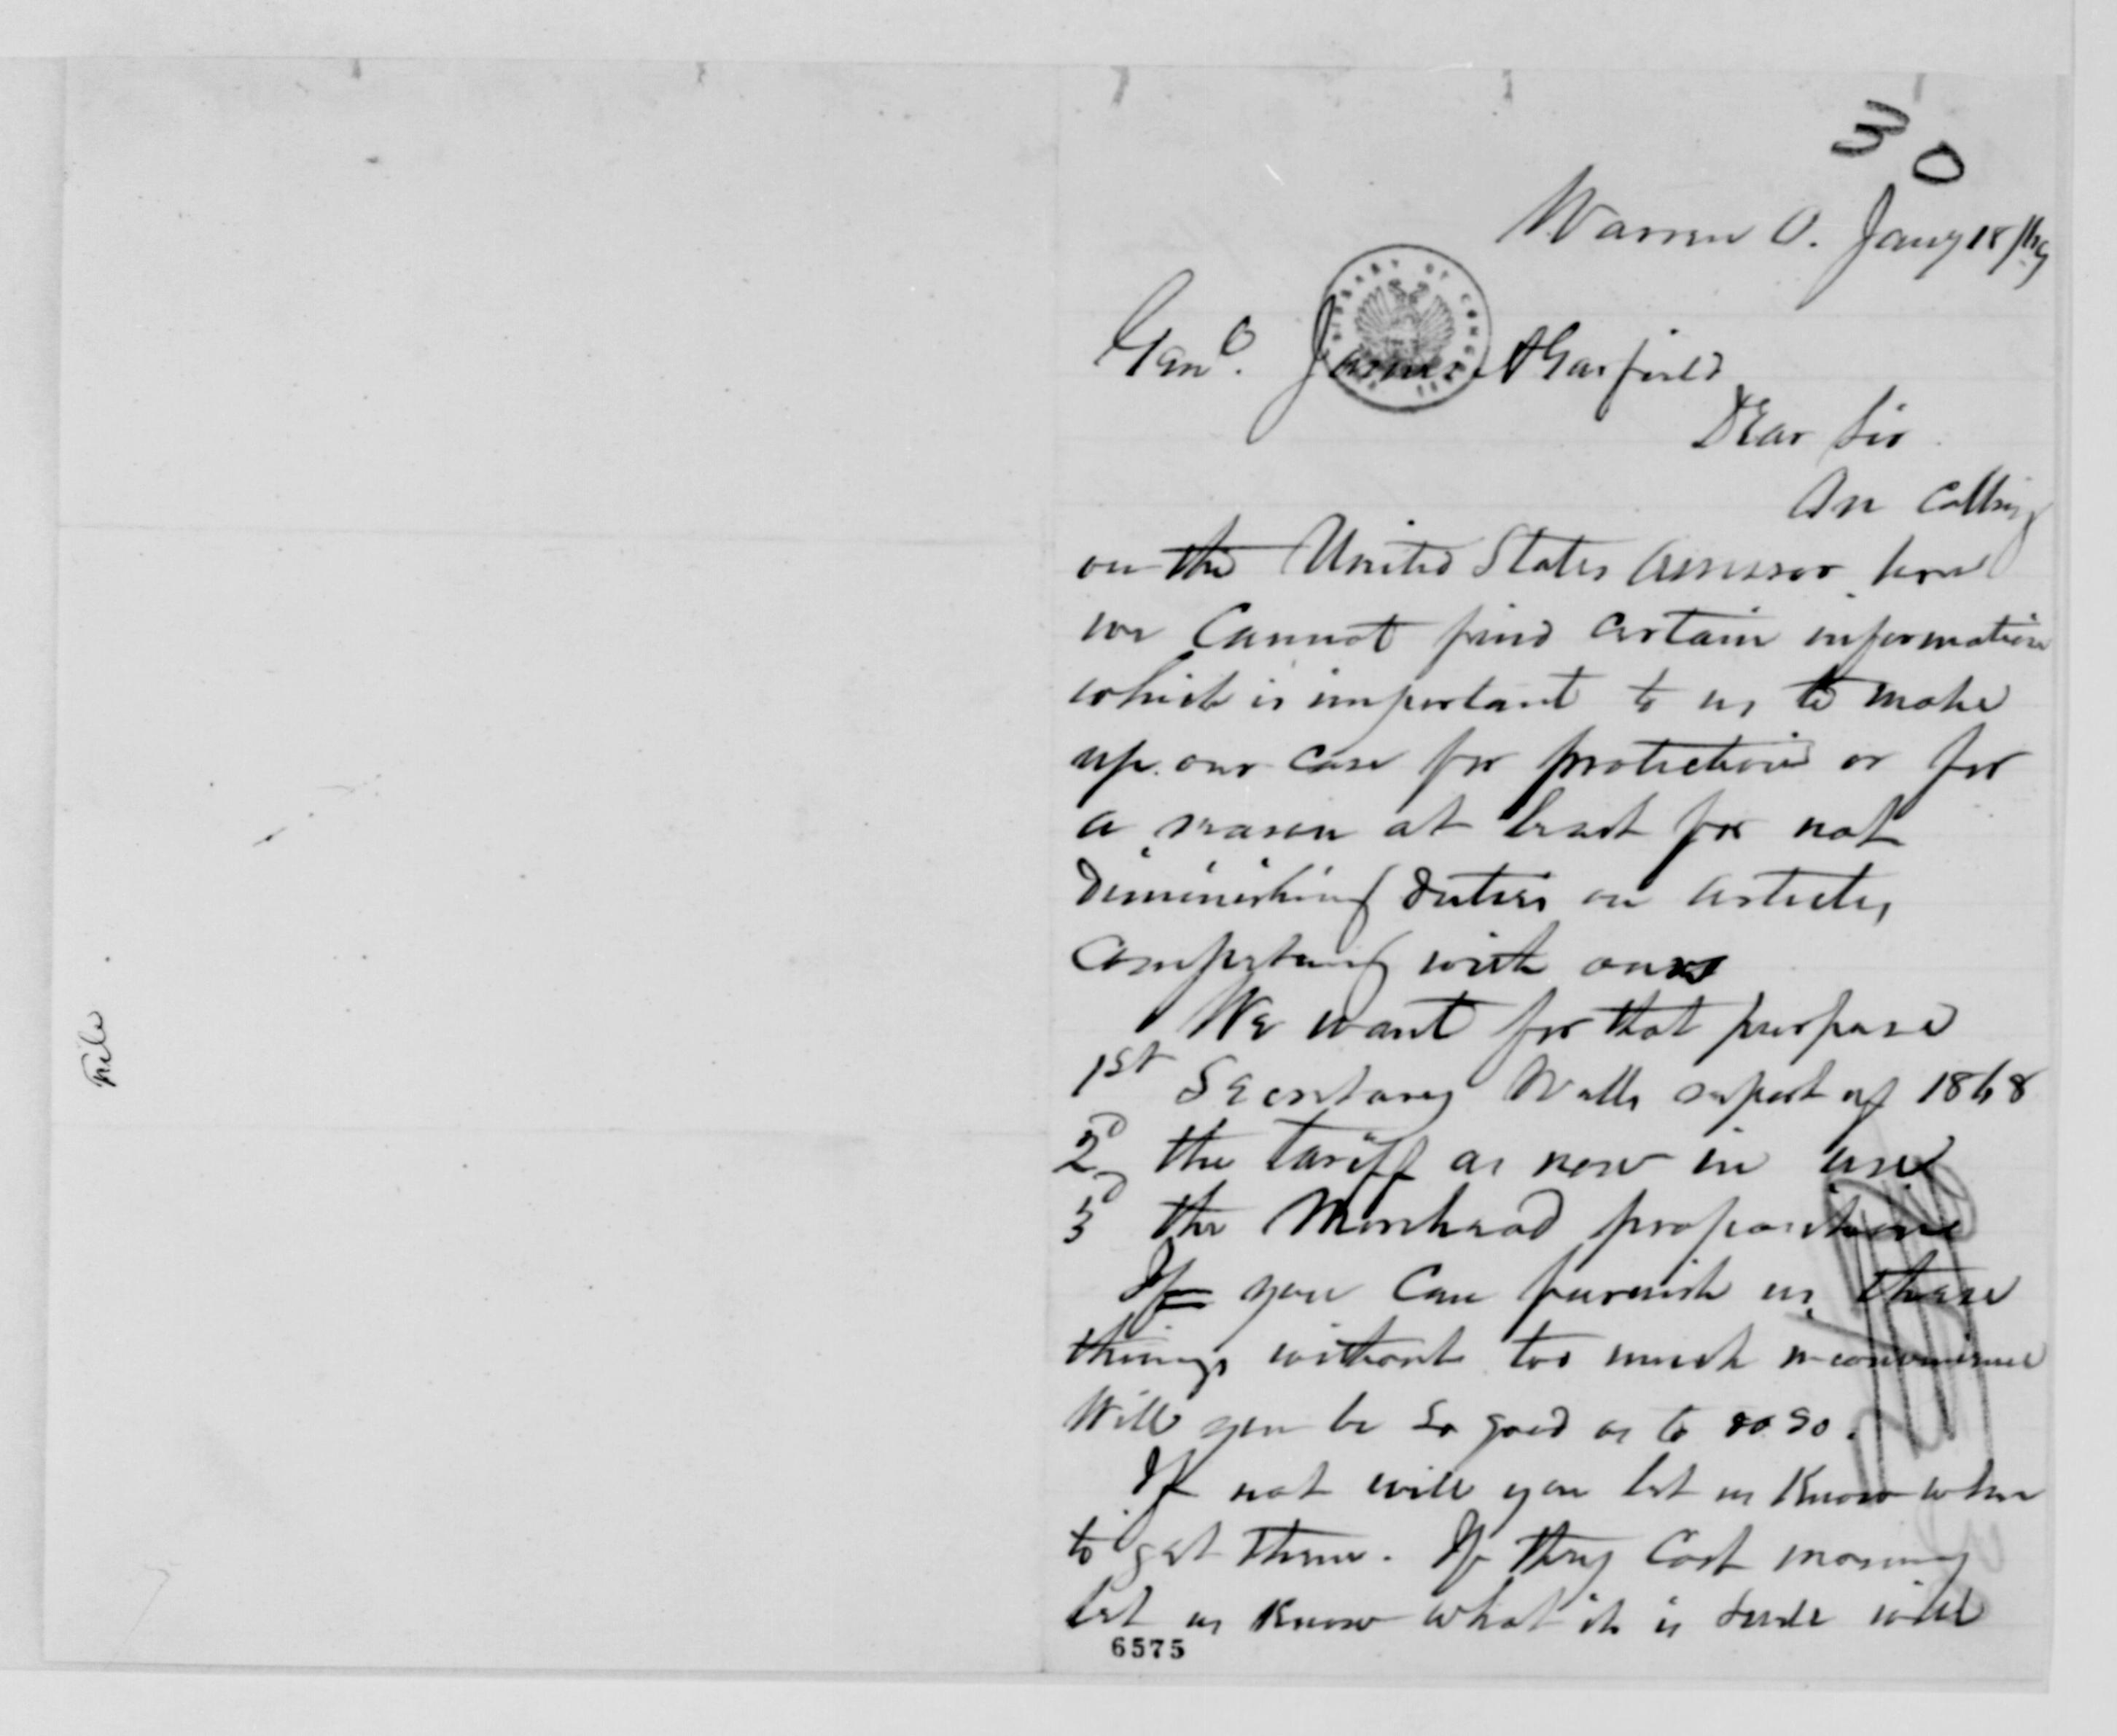 30
Warren O. Jany 18/69
Genl. James A Garfield
Dear Sir
On calling
on the United States Assessor here
we Cannot find certain information
which is important to us to make
up our case for protection or for
a reason at least for not
Diminishing duties on articles
competing with ours
We want for that purpose
1st Secretary Wells report of 1868
2d the tariff as now in use
3d the Moorhead propositions
If you Can furnish us these
things without too much inconvenience
Will you be so good as to do so.
If not will you let us Know where
to get them. If they Cost money
let us Know what it is & will
File
6575
LIBRARY OF CONGRESS